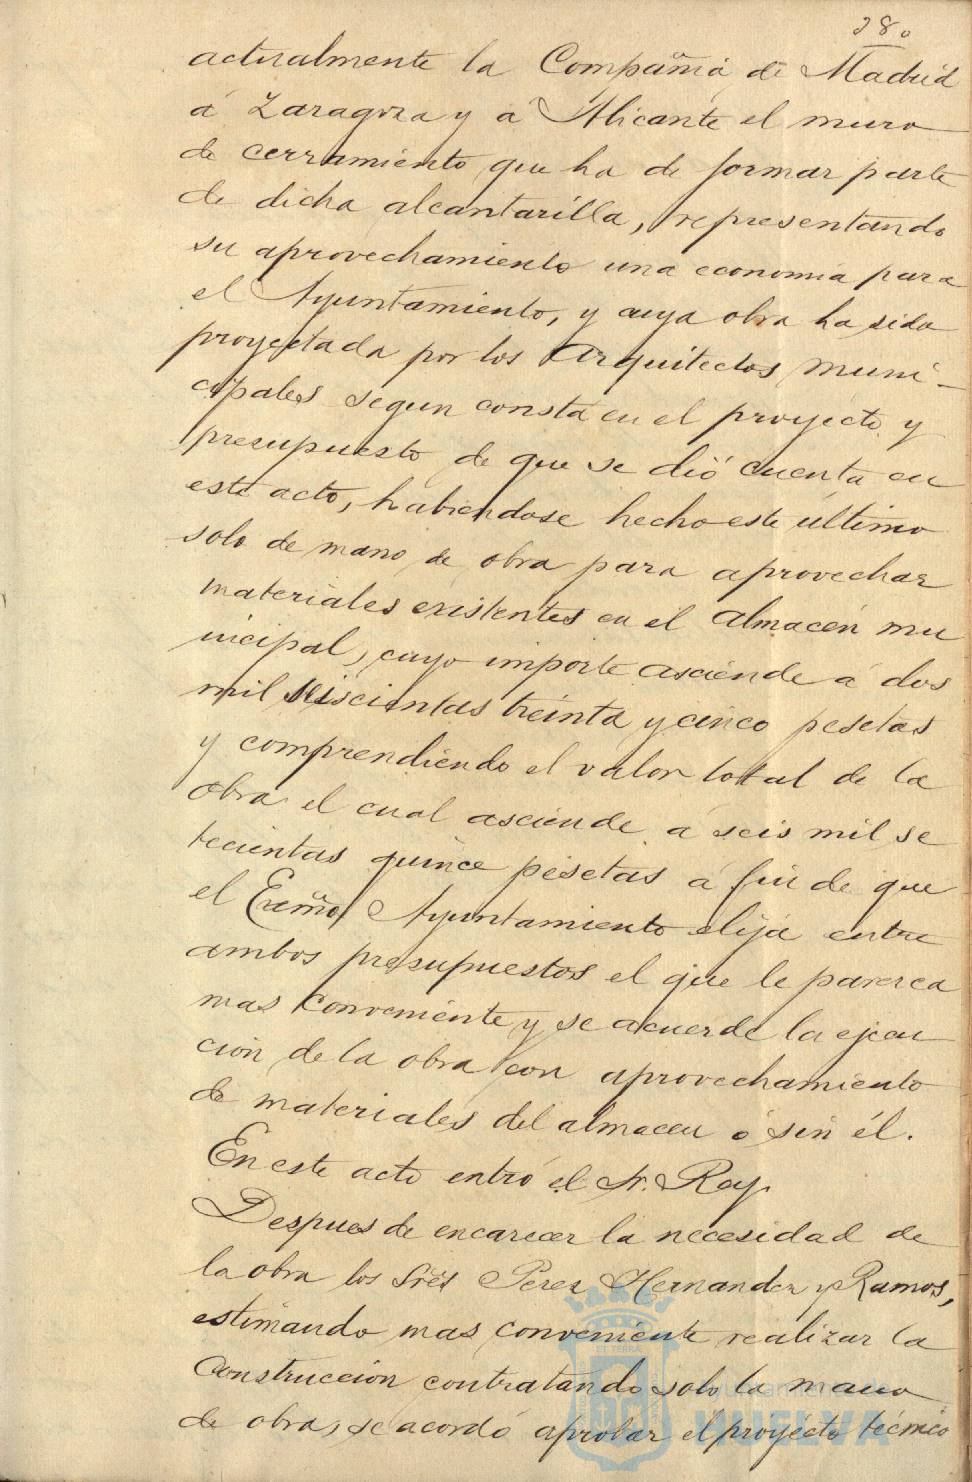 280
actualmente la Compañia de Madrid
á Zaragoza y á Alicante el muro
de cerramiento que ha de formar parte
de dicha alcantarilla, representando
su aprovechamiento una economia para
el Ayuntamiento, y cuya obra ha sido
proyectada por los Arquitectos muni-
cipales segun consta en el proyecto y
presupuesto de que se dió cuenta en
este acto, habiendose hecho este último
solo de mano de obra para aprovechar
materiales existentes en el almacén mu
nicipal, cuyo importe asciende á dos
mil seiscientas treinta y cinco pesetas
y comprendiendo el valor total de la
obra el cual asciende á seis mil se
tecientas quince pesetas á fin de que
el Exmo Ayuntamiento elija entre
ambos presupuestos el que le parezca
mas conveniente y se acuerde la ejecu
ción de la obra con aprovechamiento
de materiales del almacen ó sin él.
En este acto entró el Sr. Rey.
Despues de encarecer la necesidad de
la obra los Sres Perez Hernandez y Ramos,
estimando mas conveniente realizar la
construccion contratando solo la mano
de obra, se acordó aprobar el proyecto técnico
Ayuntamiento de
HUELVA